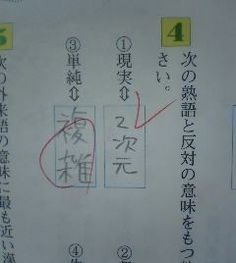 4
次の熟語と反対の意味をもつ
さい。
①現実⇔
2次元
②
③単純⇔
複雑
④
5
次の外来語の意味に最も近い漢